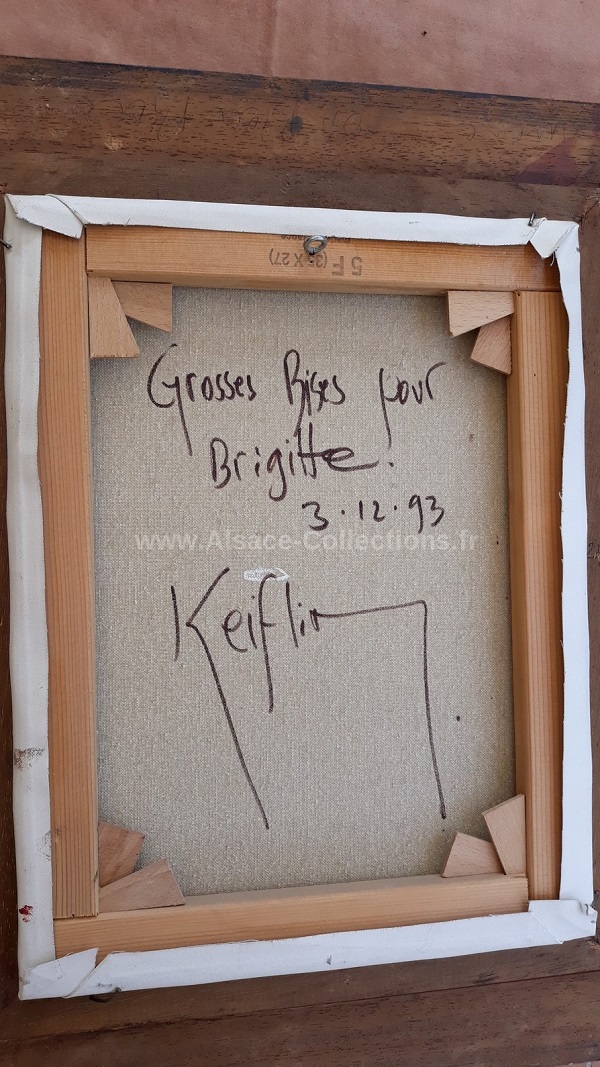 5 F (35 X 27)
Grosses Bises pour
Brigitte.
3.12.93
www.Alsace-Collections.fr
Keiflin